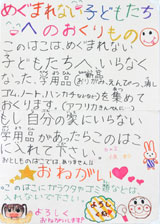 めぐまれない子どもたち
へのおくりもの
このはこは、めぐまれない
子どもたちへ、いらなく
なった学用品
ゴム、ノート、ハンカチなどなど)を集めて
おくります。(アフリカ
もし自分の家にいらない
学用品があったらこのはこ
に入れて下さい。
おとしものはこでは ありません
おねがい
このはこにガラクタやゴミ
入れないで下さい。
よろしく
おねがいします!